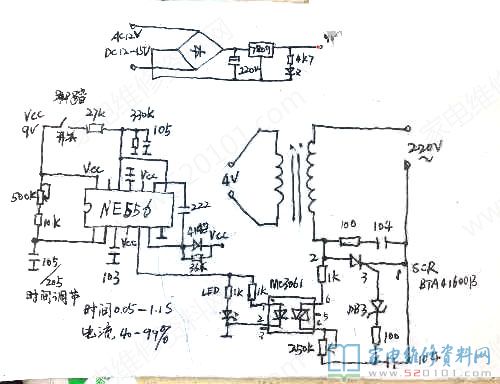 AC12V
DC12-15V
7809
9V
220u
4K7
脚踏
开关
Vcc
9V
27K
330K
105
Vcc
Vcc
NE556
222
500K
10K
Vcc
4148
Vcc
36K
105
205
103
时间调节
时间0.05-1.1S
电流40-99%
4V
220V
~
100
104
2
3
SCR
BTA41600B
1K
DB3
100
LED
1K
1K
MC3061
1
2
3
6
5
4
250K
104
家电维修资料网
www.520101.com